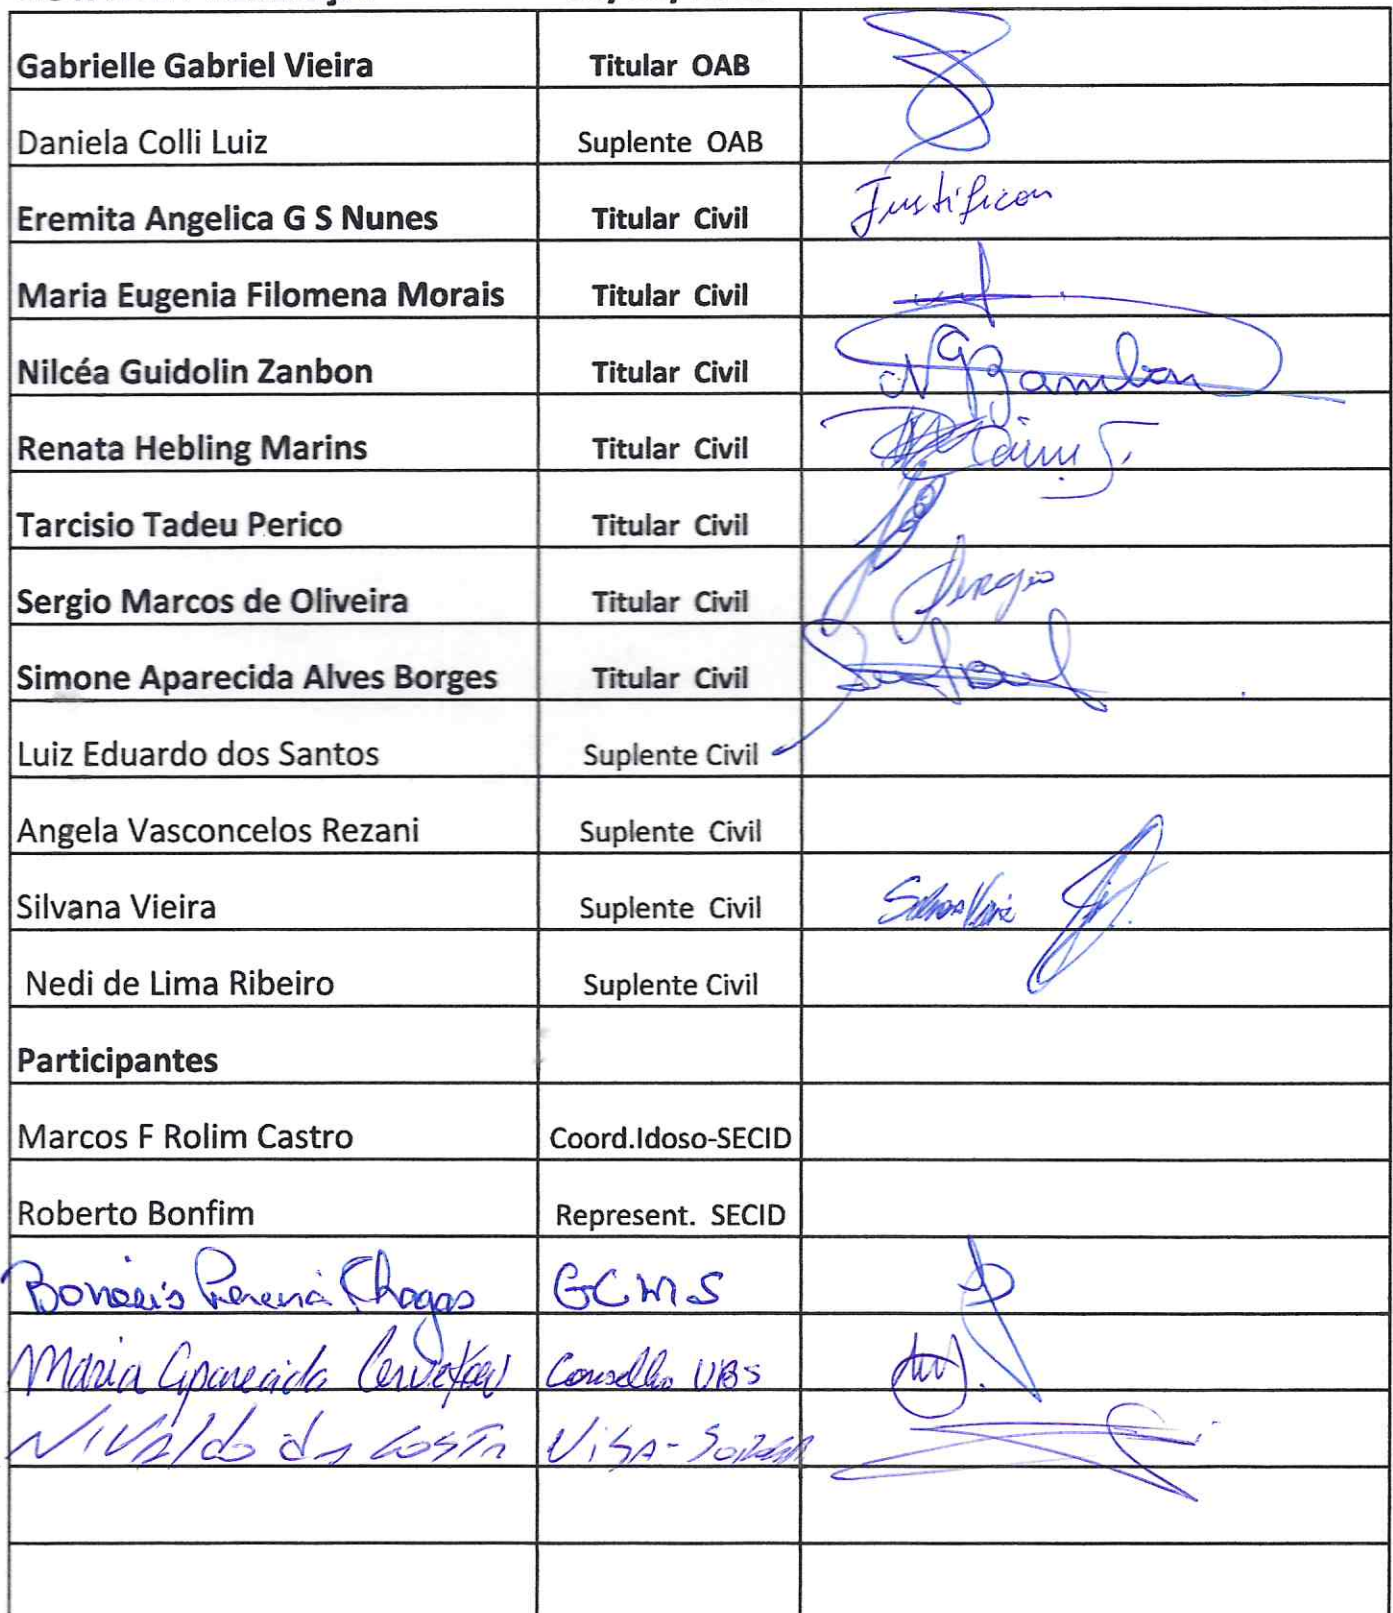 Gabrielle Gabriel Vieira Titular OAB
Daniela Colli Luiz Suplente OAB
Eremita Angelica G S Nunes Titular Civil Justificou
Maria Eugenia Filomena Morais Titular Civil
Nilcéa Guidolin Zanbon Titular Civil NGZambon
Renata Hebling Marins Titular Civil
Tarcisio Tadeu Perico Titular Civil
Sergio Marcos de Oliveira Titular Civil Sergio
Simone Aparecida Alves Borges Titular Civil
Luiz Eduardo dos Santos Suplente Civil
Angela Vasconcelos Rezani Suplente Civil
Silvana Vieira Suplente Civil
Nedi de Lima Ribeiro Suplente Civil
Participantes
Marcos F Rolim Castro Coord.Idoso-SECID
Roberto Bonfim Represent. SECID
Chagas GCMS
Maria Aparecida Conselho UBS
Nivaldo da Costa Visa-